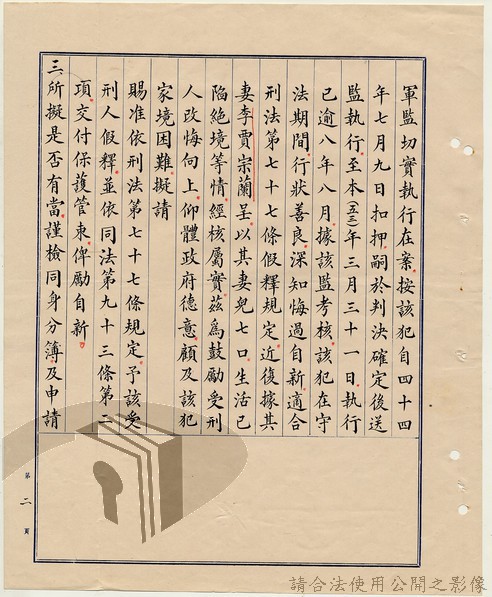 軍監切實執行在案。按該犯自四十四
年七月九日扣押。嗣於判決確定後送
監執行。至本(五三)年三月三十一日。執行
已逾八年八月。據該監考核。該犯在守
法期間。行狀善良。深知悔過自新。適合
刑法第七十七條假釋規定。近復據其
妻李賈宗蘭呈。以其妻兒七口生活已
陷絕境等情。經核屬實。茲為鼓勵受刑
人改悔向上。仰體政府德意。顧及該犯
家境困難。擬請
賜准依刑法第七十七條規定。予該受
刑人假釋。並依同法第九十三條第二
項。交付保護管束。俾勵自新。
三、所擬是否有當。謹檢同身分簿及申請
第二頁
請合法使用公開之影像